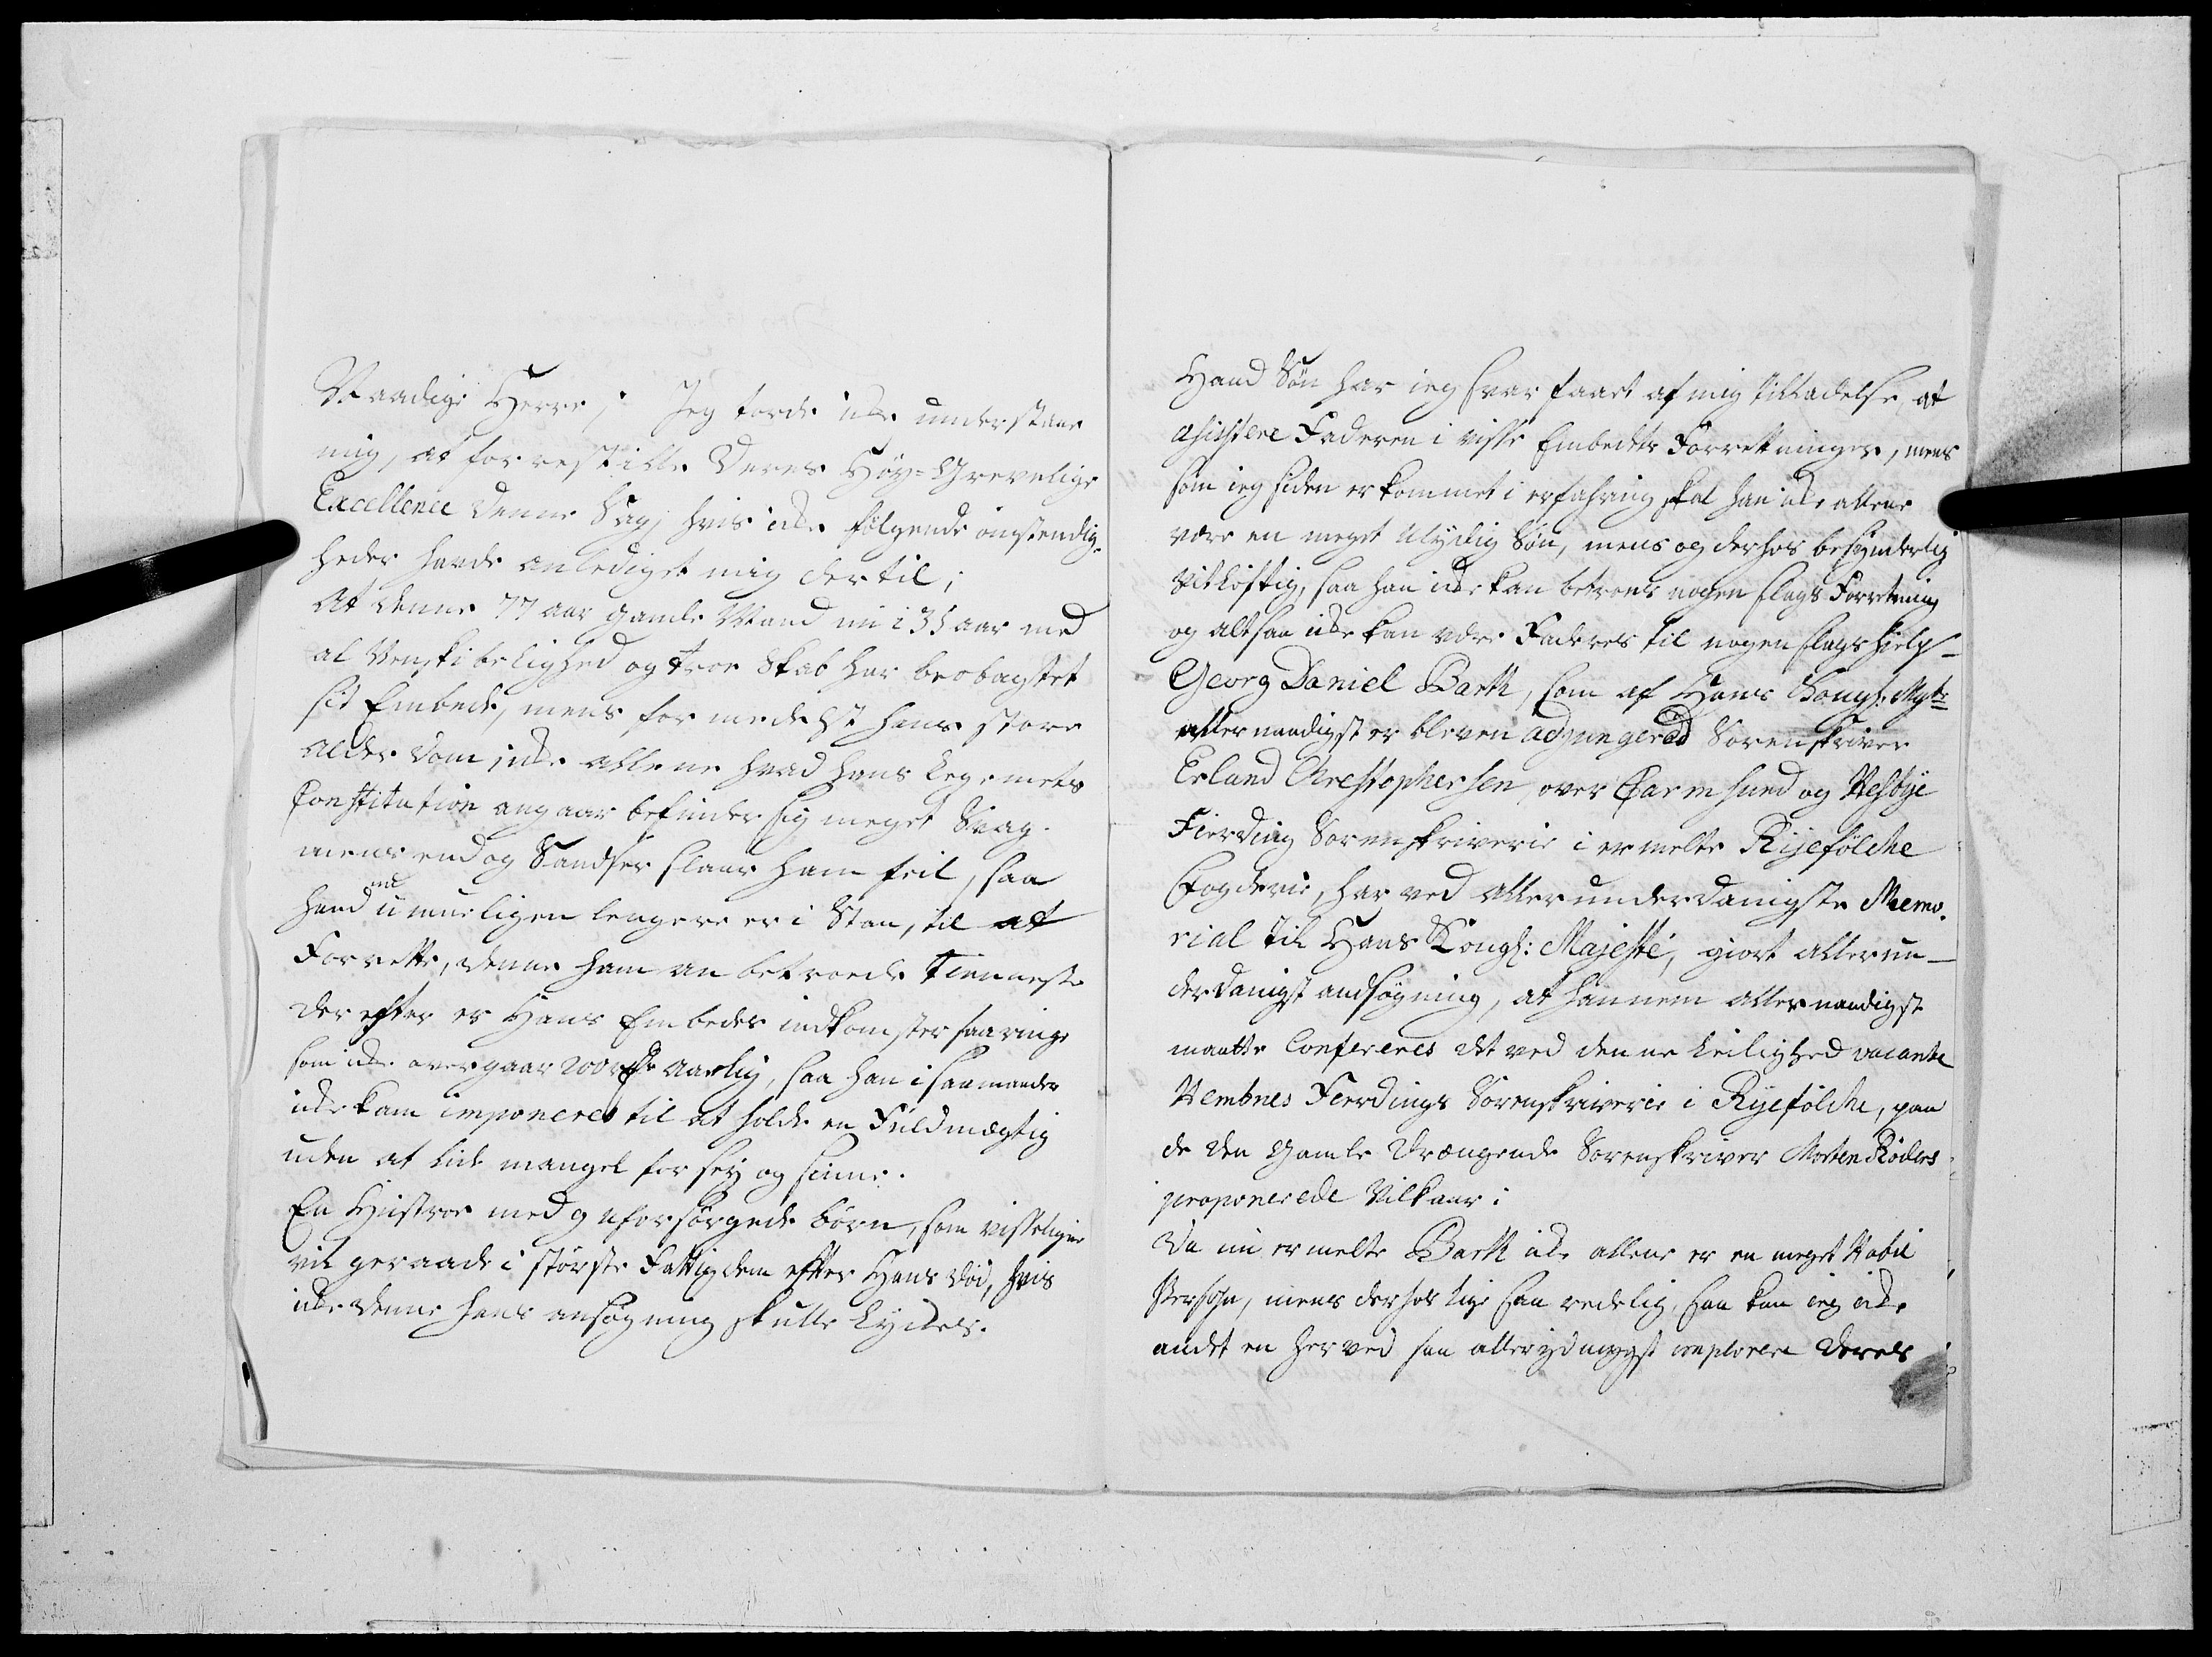 Naadige Herre; Jeg torde icke understaae
mig, at forrestille Deres Høy-Grevelige
Excellence denne Sag, hvis icke følgende omstendig-
heder havde anlediget mig dertil;
At denne 77 aar gamle Mand nu i 35 aar med
al Skab har beobagtet
sit Embede, mens formedelst hans store
Alderdom, icke allene hvad hans Legemets
Constitution angaar befinder sig meget Svag
mens end og Sandser slaar ham feil, saa
hand nu umueligen lengere er i Stan, til at
Forrette, denne ham anbetroede Tienneste
der efter er Hans Embedes indkomster saa ringe
som icke overgaar 200 rdr Aarlig, saa han i saa maader
icke kan imponeres til at holde en Fuldmægtig
uden at lide mangel for sig og sinne.
En Hustroe med 9 uforsørgede børn, som visseligen
vil geraade i største Fattigdom efter Hans død, hvis
icke denne hans ansøgning skulle Lyckes.
Hand Søn har ieg faaet af mig Tilladelse, at
assistere Faderen i visse Embedets Forrettninger, mens
som ieg siden er kommet i erfahring skal han icke allene
være en meget Ulydig Søn, mens og derhos besynderlig
Vitløftig, saa han icke kan betroes nogen slags Forretning
og altsaa icke kan være Faderen til nogen slags hielp
Georg Daniel Barth, som af Hans Kongl: Mayts
allernaadigst er bleven adjungered Sorenskriver
Erland Chrestophersen, over Karmsund og Hesbye
Fierding Sorenskriverie i ermelte Ryefølche
Fogderie, har ved allerunderdanigste Memo-
rial til Hans Kongl: Majesté, giort allerun-
derdanigst andsøgning, at hannem allernaadigst
maatte Confereres det ved denne Leilighed vacante
Nembnes Fierdings Sorenskriverie i Ryefølche, paa
de den gamle trængende Sorenskriver Morten Röders
proponerede Vilkaar:
Da nu ermelte Barth icke allene er en meget Habil
Persohn, mens derhos lige saa redelig, saa kan ieg icke
andet en herved saa allerydmygst implorere Deres